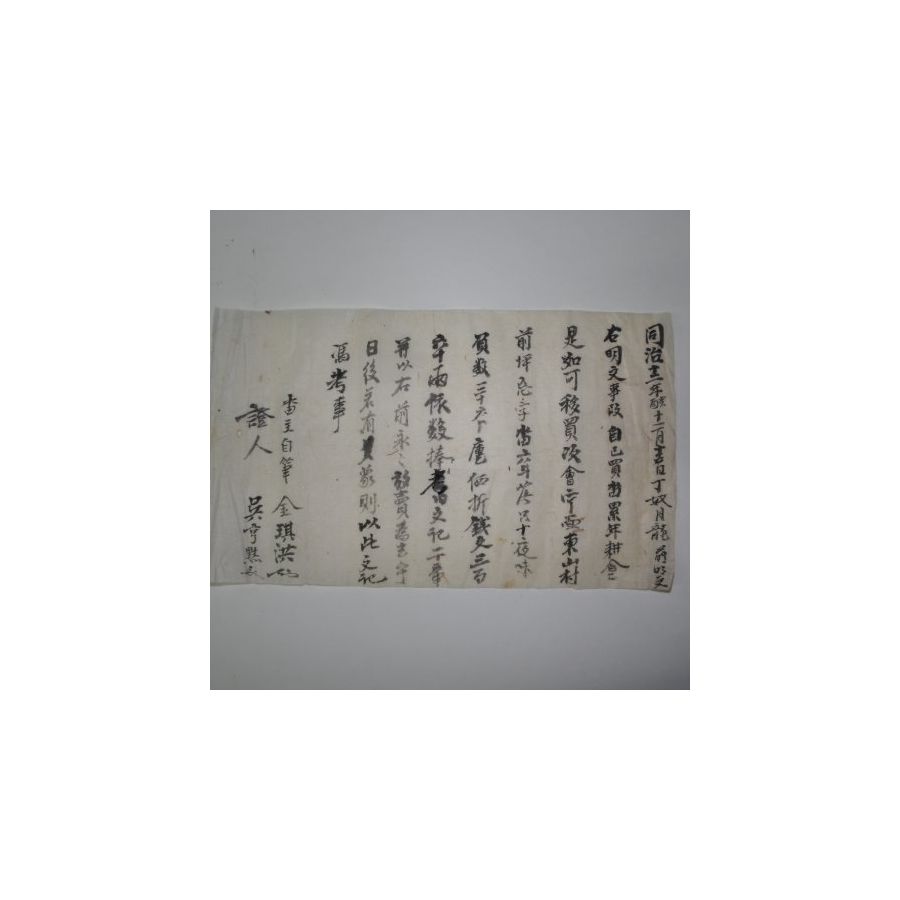 同治十二年癸酉十二月吉日丁奴月龍前明文
右明文事段自己買畓累年耕食
是如可移買次會寧面東山村
前坪 字畓六斗落只十夜味
負數三十六卜 㐣価折錢文三百
六十兩依數捧 文記二丈
幷以右前永永放賣爲去乎
日後若有 則以此文記
馮考事
畓主自筆 金琪洪
證人 吳亨